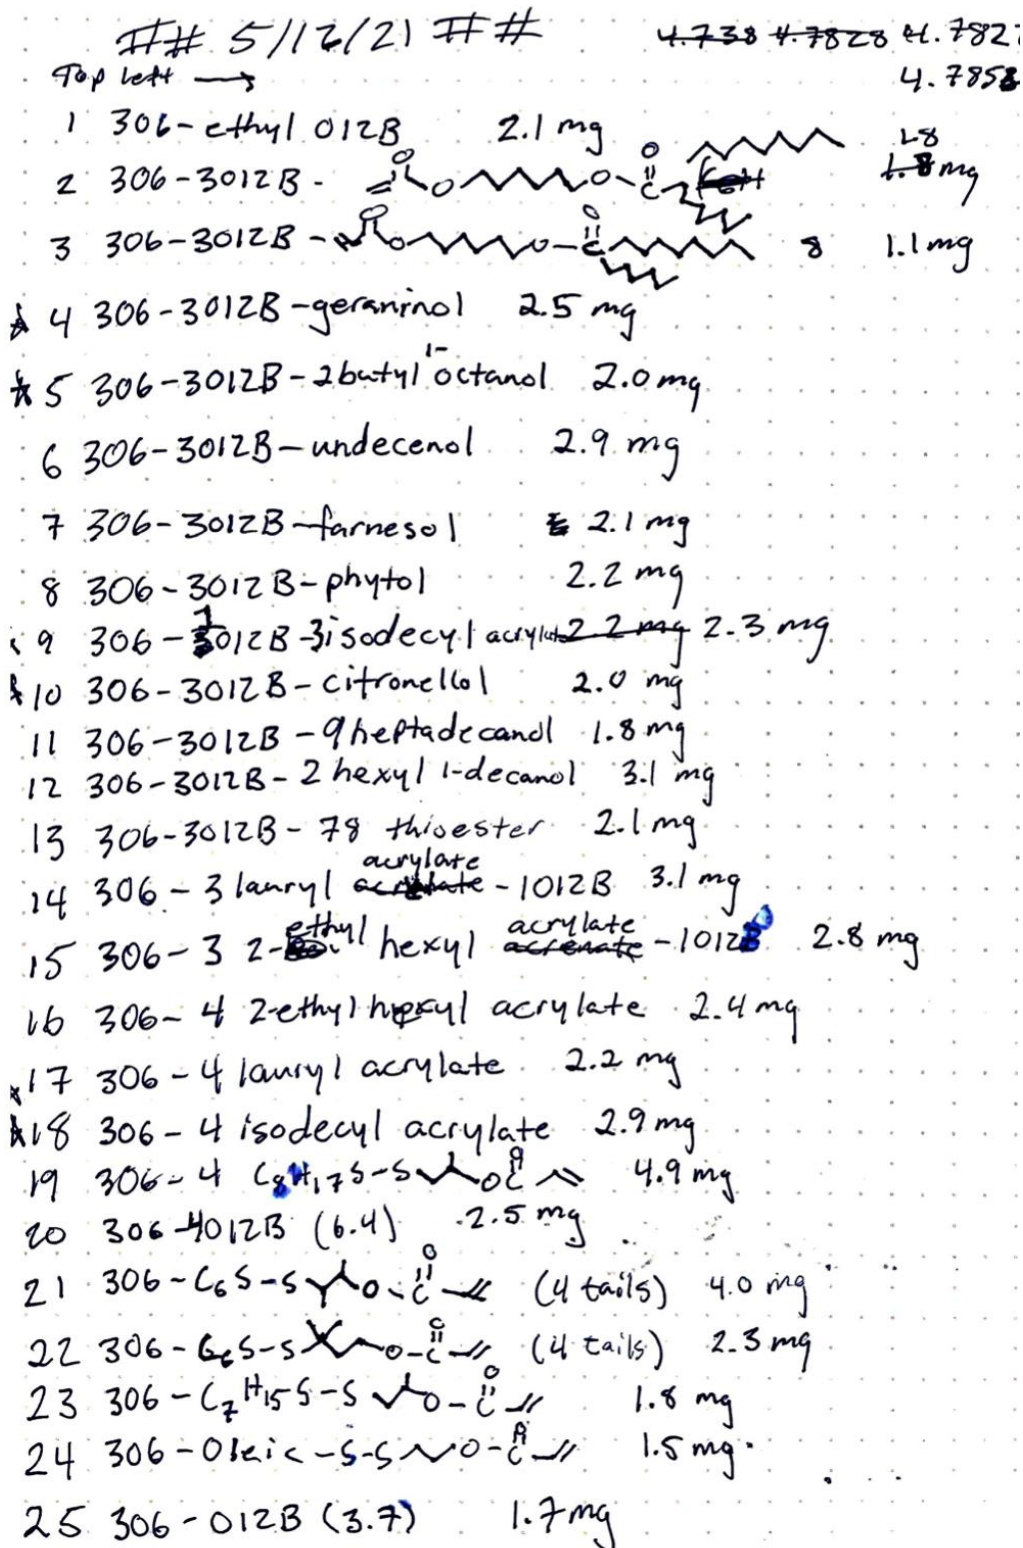 ## 5/12/21 ## 4.738 4.7828 4.7827
Top left → 4.7858
1 306-ethyl O12B 2.1 mg
2 306-3O12B- O O O C O 1.8 1.8 mg
3 306-3O12B- O O O C O 8 1.1 mg
4 306-3O12B-geraninol 2.5 mg
5 306-3O12B-2butyl 1-octanol 2.0 mg
6 306-3O12B-undecenol 2.9 mg
7 306-3O12B-farnesol 2.1 mg
8 306-3O12B-phytol 2.2 mg
9 306-1O12B-3isodecyl acrylat 2.2 mg 2.3 mg
10 306-3O12B-citronellol 2.0 mg
11 306-3O12B-9heptadecanol 1.8 mg
12 306-3O12B-2 hexyl 1-decanol 3.1 mg
13 306-3O12B-78 thioester 2.1 mg
14 306-3 lauryl acrylate -1O12B 3.1 mg
15 306-3 2-ethyl hexyl acrylate -1O12B 2.8 mg
16 306-4 2-ethyl hexyl acrylate 2.4 mg
17 306-4 lauryl acrylate 2.2 mg
18 306-4 isodecyl acrylate 2.9 mg
19 306-4 C8H17S-S O C O 4.9 mg
20 306-4O12B (6.4) 2.5 mg
21 306-C6S-S O-C O (4 tails) 4.0 mg
22 306-C6S-S O-C O (4 tails) 2.3 mg
23 306-C7H15S-S O-C O 1.8 mg
24 306-Oleic-S-S O-C O 1.5 mg
25 306-O12B (3.7) 1.7 mg